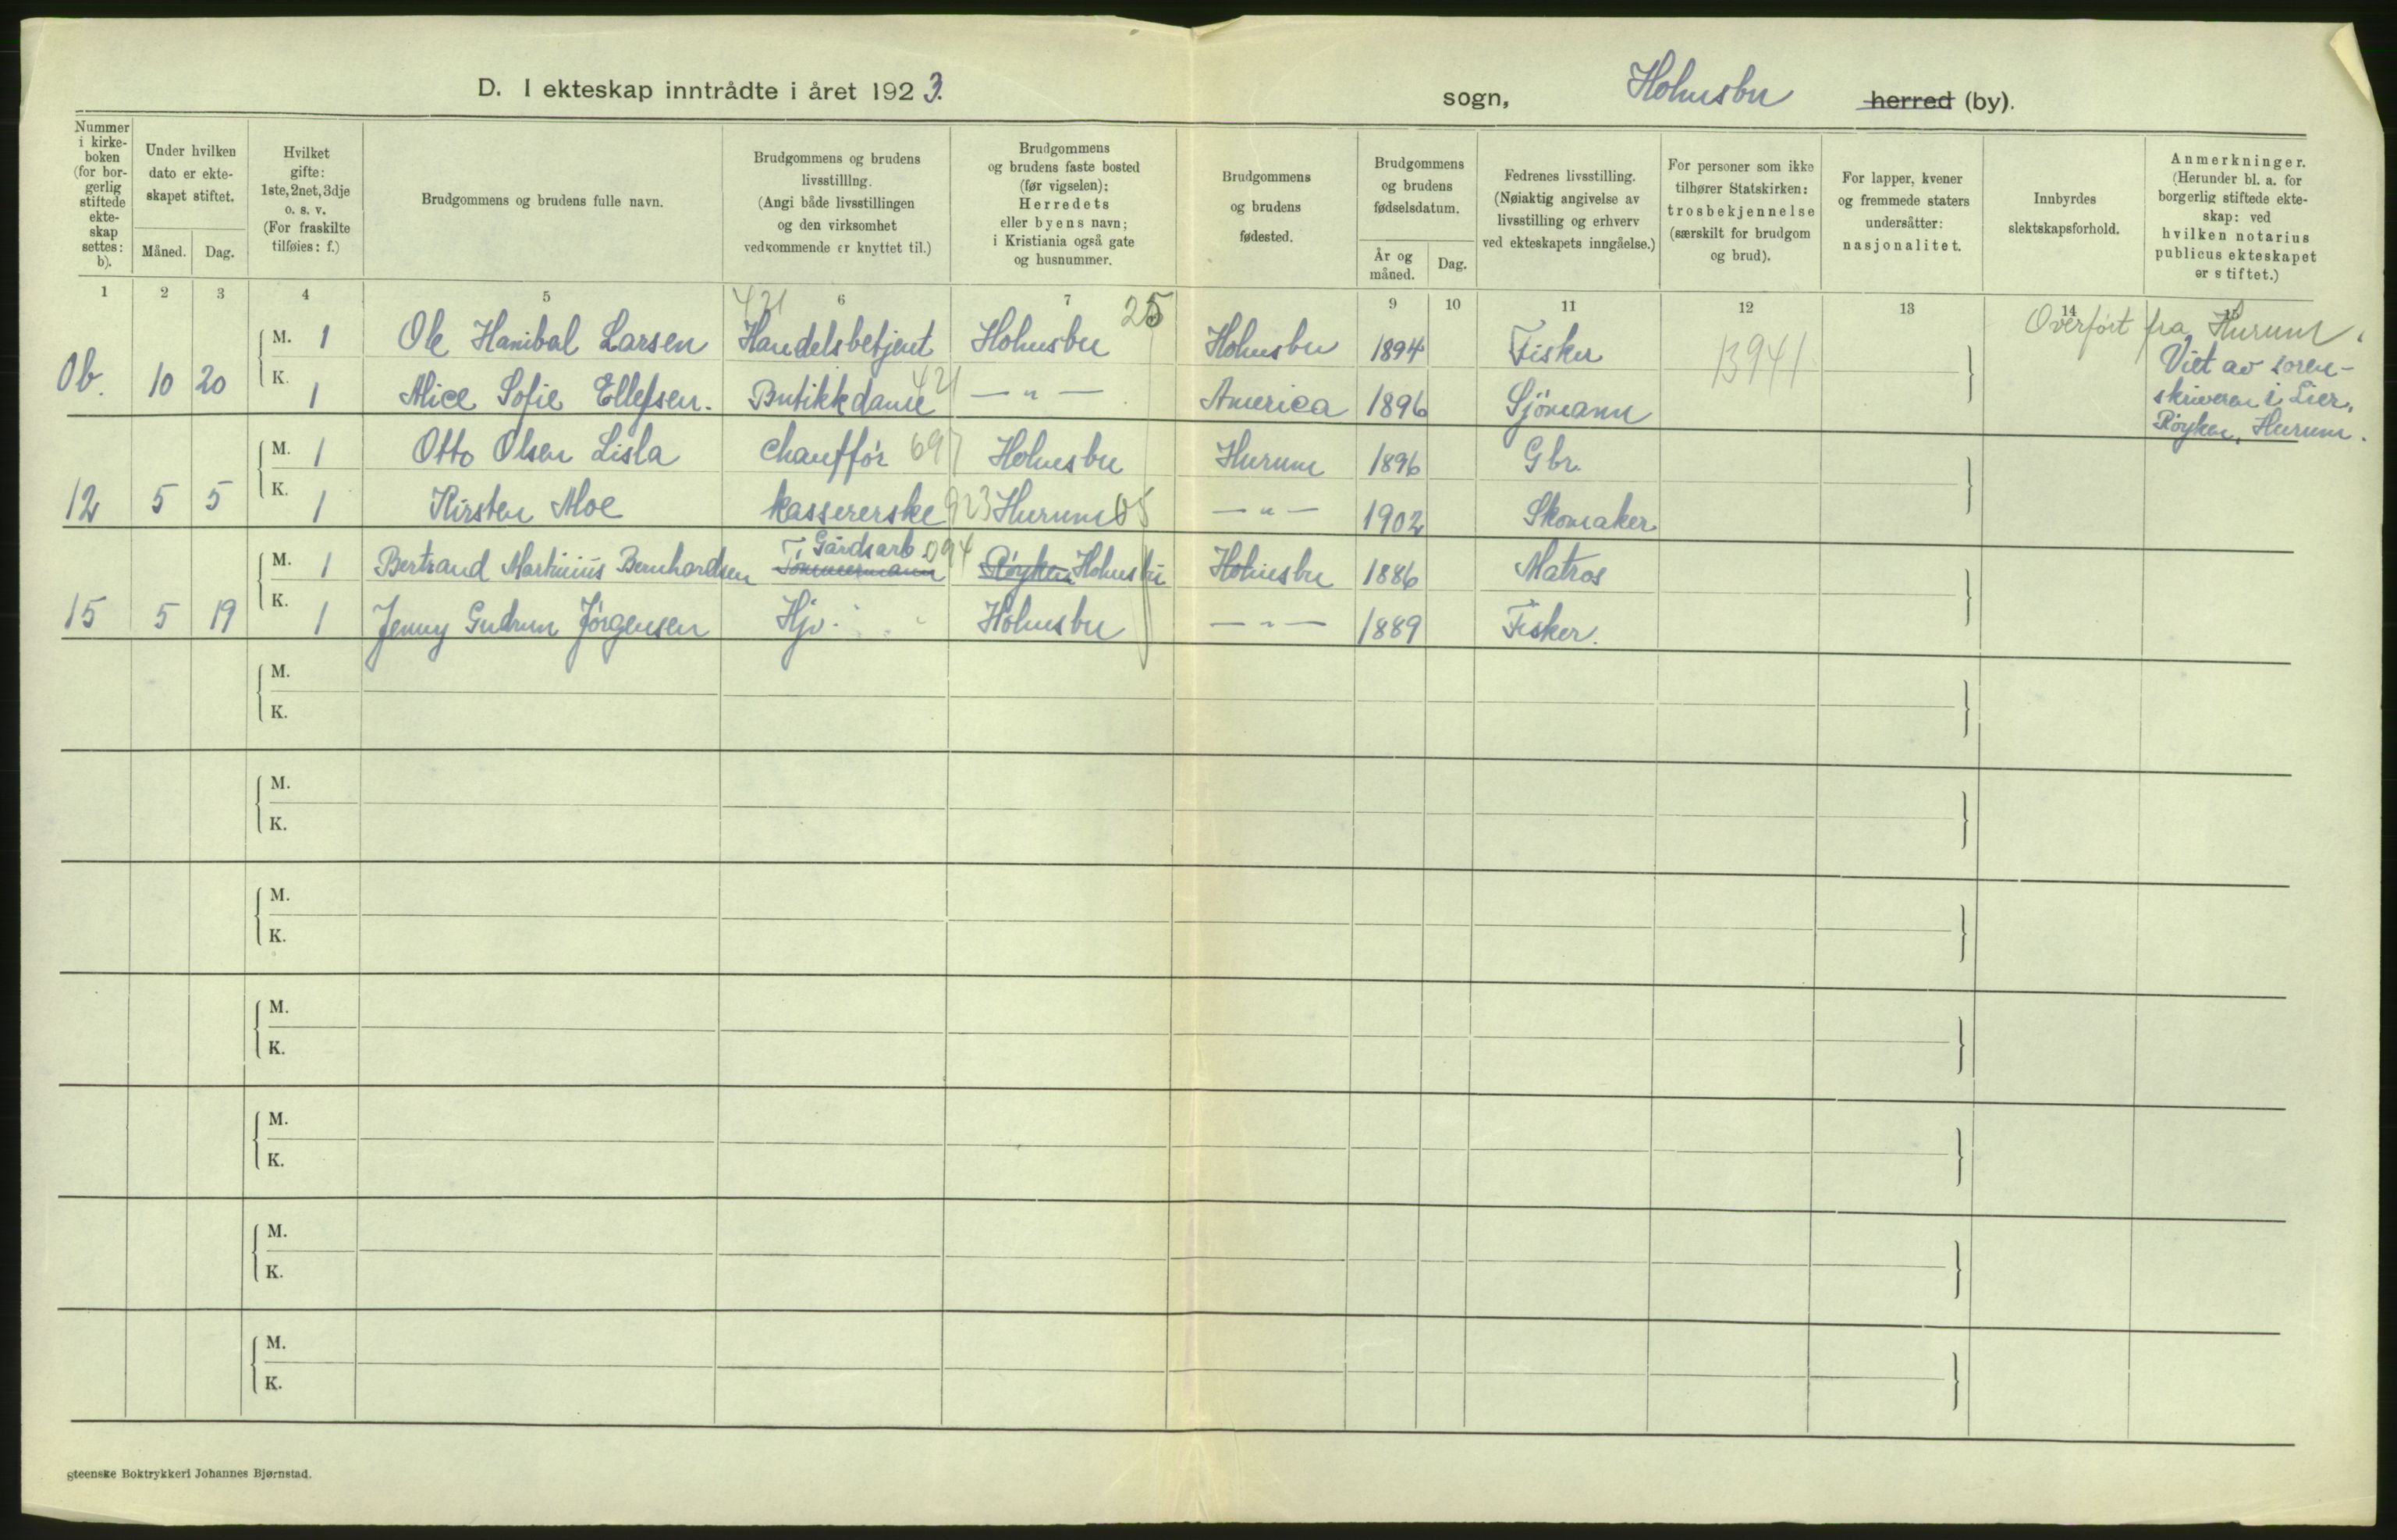 D. I ekteskap inntrådte i året 1923.
sogn, Holmsbu herred (by).
Nummer i kirke-boken (for bor-gerlig stiftede ekte-skap settes: b).
Under hvilken dato er ekte-skapet stiftet.
Måned. Dag.
Hvilket gifte: 1ste, 2net, 3dje o. s. v. (For fraskilte tilføies: f.)
Brudgommens og brudens fulle navn.
Brudgommens og brudens livsstilllng. (Angi både livsstillingen og den virksomhet vedkommende er knyttet til.)
Brudgommens og brudens faste bosted (før vigselen); Herredets eller byens navn; i Kristiania også gate og husnummer.
Brudgommens og brudens fødested.
Brudgommens og brudens fødselsdatum.
År og måned. Dag.
Fedrenes livsstilling. (Nøiaktig angivelse av livsstilling og erhverv ved ekteskapets inngåelse.)
For personer som ikke tilhører Statskirken: trosbekjennelse (særskilt for brudgom og brud).
For lapper, kvener og fremmede staters undersåtter: nasjonalitet.
Innbyrdes slektskapsforhold.
Anmerkninger. (Herunder bl. a. for borgerlig stiftede ekte-skap: ved hvilken notarius publicus ekteskapet er stiftet.)
1 2 3 4 5 6 7 9 10 11 12 13 14
421 25
Overført fra Hurum.
M. 1 Ole Hanibal Larsen Handelsbetjent Holmsbu Holmsbu 1894 Fisker 13941
Ob. 10 20
K. 1 Alice Sofie Ellefsen. Butikkdame 421 — " — America 1896 Sjömann
Viet av soren-
skriveren i Lier,
Røyken, Hurum.
M. 1 Otto Olsen Lisla Chauffør 697 Holmsbu Hurum 1896 Gbr.
12 5 5
K. 1 Kirsten Moe kassererske 923 Hurum 05 — " — 1902 Skomaker
M. 1 Bertrand Martinius Bernhardsen Tømmermann Gårdsarb 094 Røyken Holmsbu Holmsbu 1886 Matros
15 5 19
K. 1 Jenny Gudrun Jørgensen Hjv. Holmsbu — " — 1889 Fisker.
M.
K.
M.
K.
M.
K.
M.
K.
M.
K.
M.
K.
M.
K.
steenske Boktrykkeri Johannes Bjørnstad.